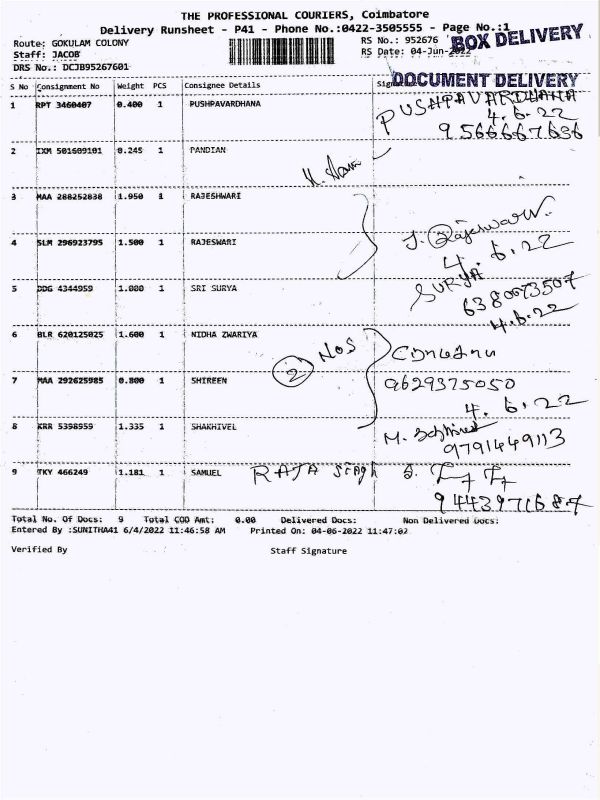 THE PROFESSIONAL COURIERS, Coimbatore
Delivery Runsheet - P41 - Phone No.:0422-3505555 - Page No.:1
Route: GOKULAM COLONY
RS No.: 952676
BOX DELIVERY
Staff: JACOB
RS Date: 04-Jun-2022
DRS No.: DCJB95267601
DOCUMENT DELIVERY
S No Consignment No Weight PCS Consignee Details Signature
1 RPT 3460407 0.400 1 PUSHPAVARDHANA
PUSHPAVARDHANA
4.6.22
9566667636
2 IXM 501609101 0.245 1 PANDIAN
3 MAA 288252838 1.950 1 RAJESHWARI
J. Rajeshwari
4 SLM 296923795 1.500 1 RAJESWARI
4.6.22
5 DDG 4344959 1.000 1 SRI SURYA
SURYA
6380073507
4.6.22
6 BLR 620125025 1.600 1 NIDHA ZWARIYA
2 NOS
7 MAA 292625985 0.800 1 SHIREEN
9629375050
4.6.22
8 KRR 5398959 1.335 1 SHAKHIVEL
M.
9791449113
9 TKY 466249 1.181 1 SAMUEL
RAJA Singh
9443971687
Total No. Of Docs: 9 Total COD Amt: 0.00 Delivered Docs: Non Delivered Docs:
Entered By :SUNITHA41 6/4/2022 11:46:58 AM Printed On: 04-06-2022 11:47:02
Verified By Staff Signature